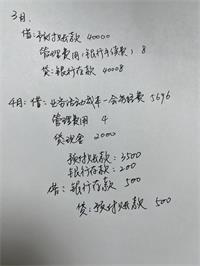 3月:
借:预付账款 40000
管理费用(银行手续费) 8
贷:银行存款 40008
4月:借:业务活动成本—会务经费 5696
管理费用 4
贷现金 2000
预付账款:3500
银行存款:200
借:银行存款 500
贷:预付账款 500